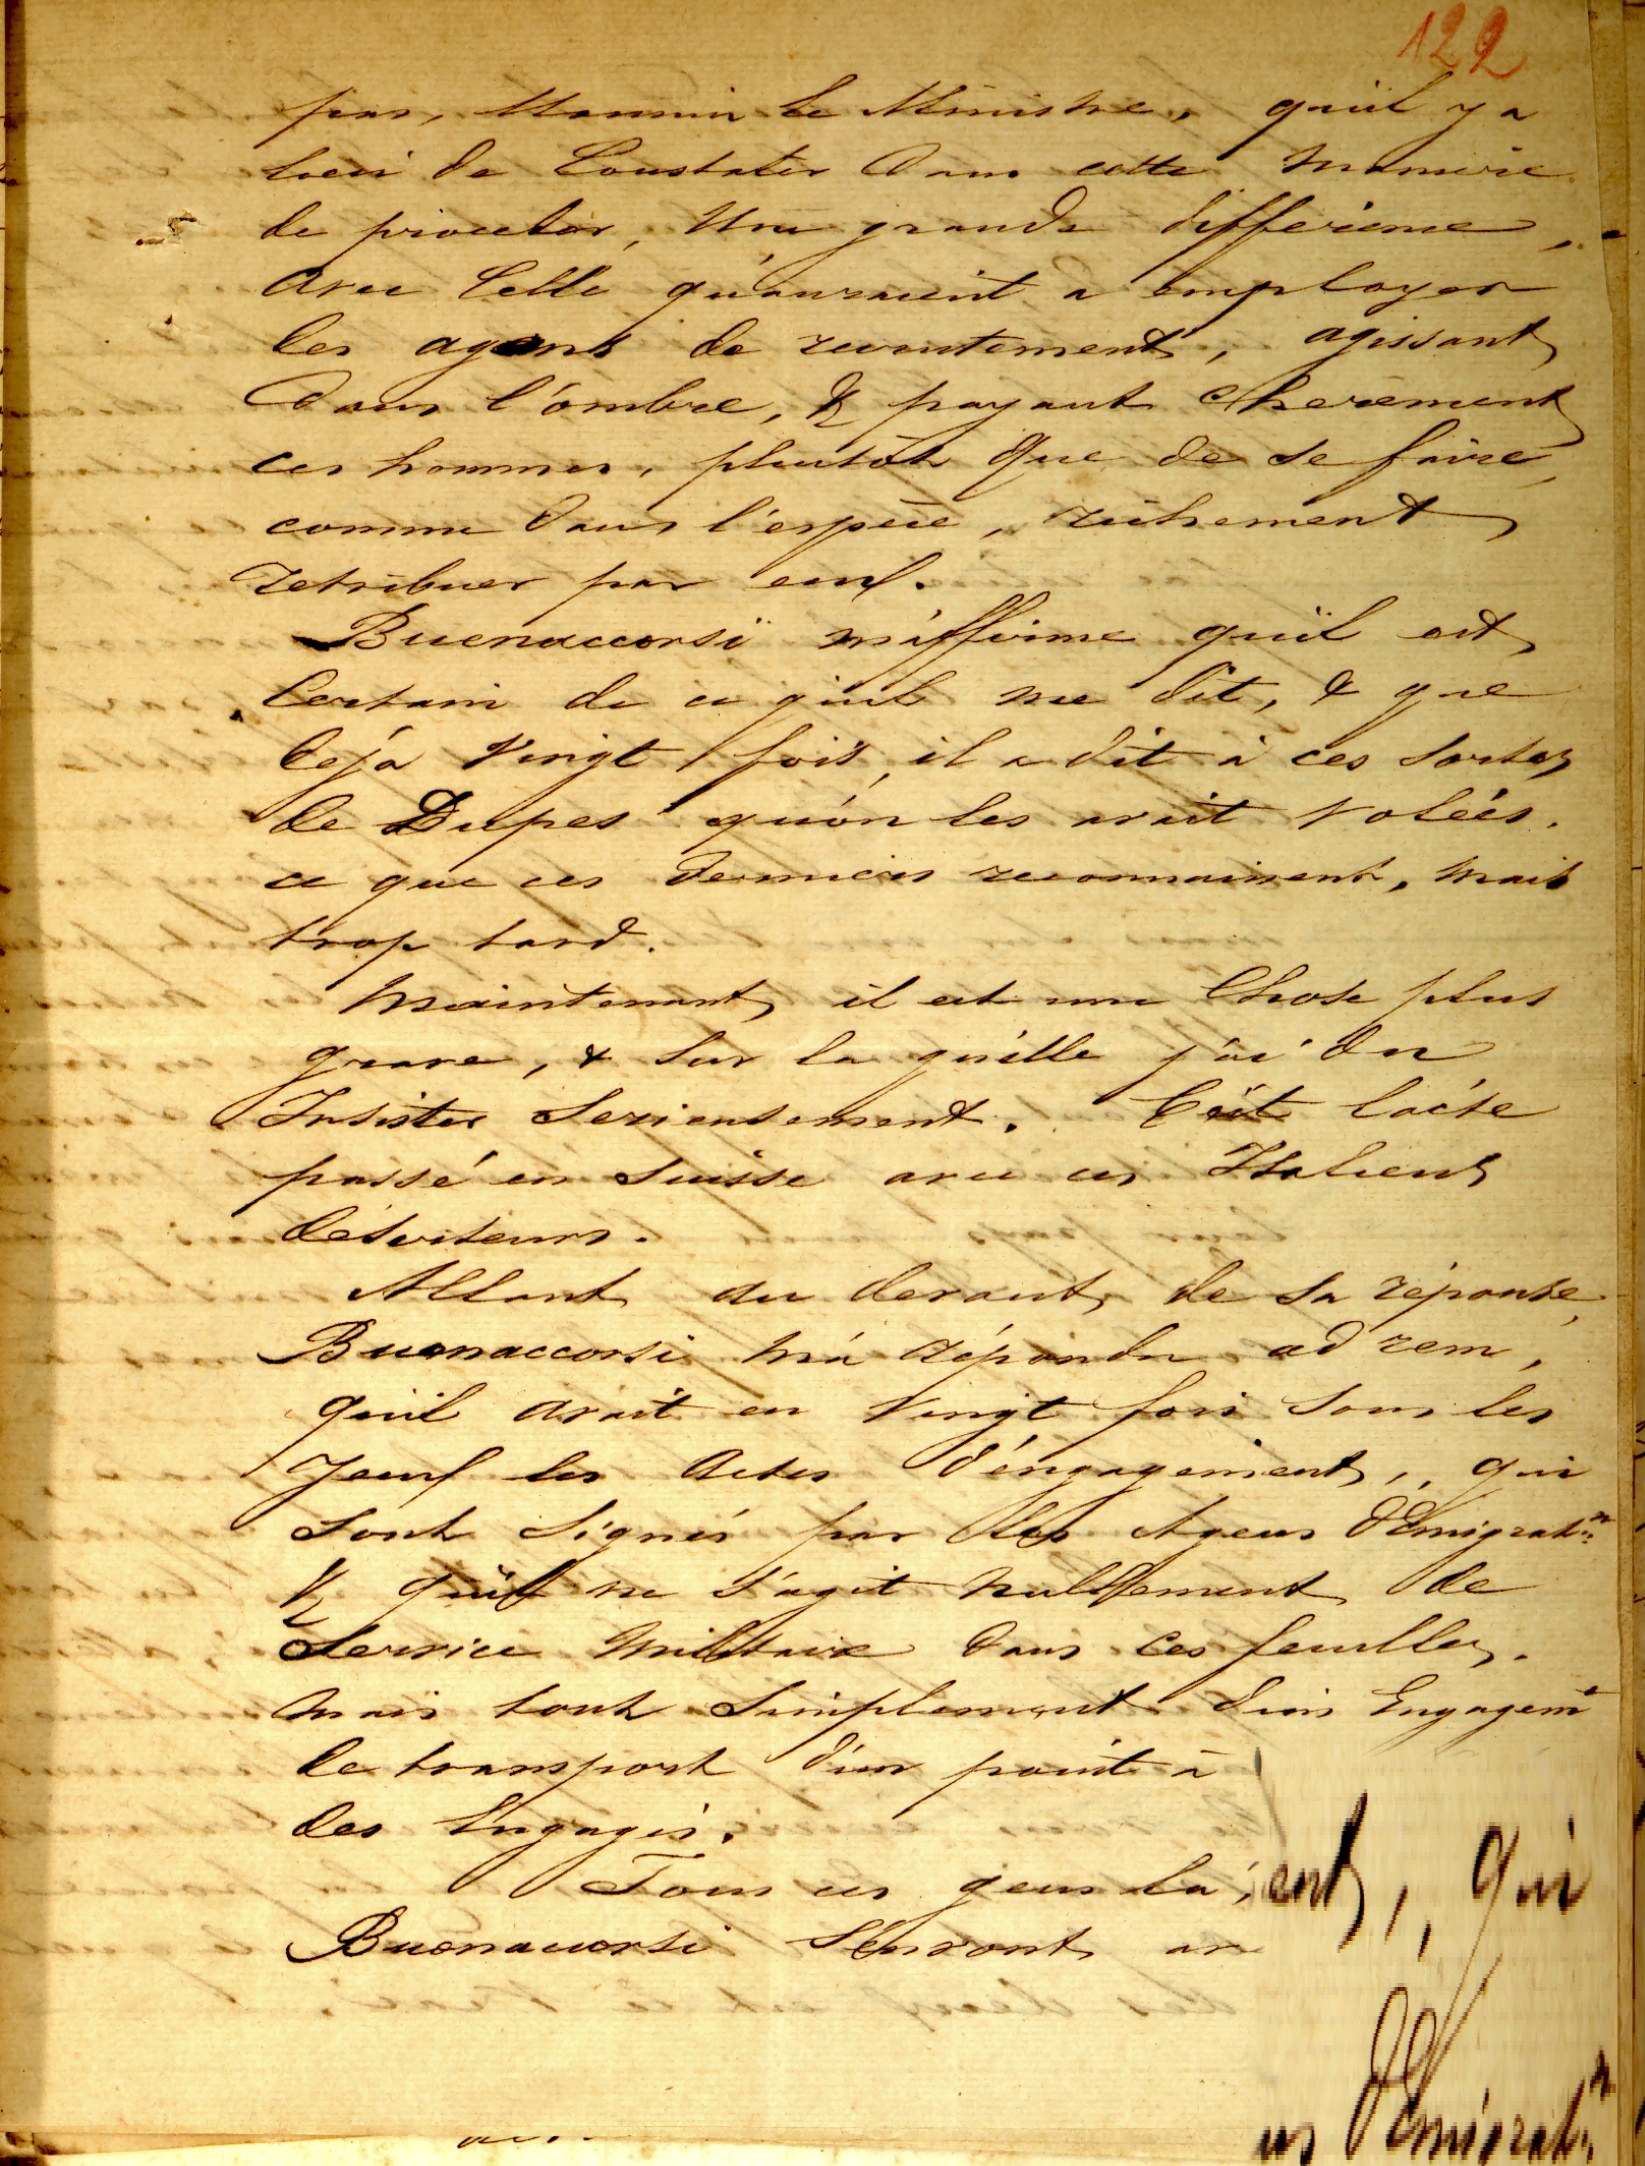 122
pas, Monsieur le Ministre, qu'il y a
lieu de Constater dans cette manière
de procéder, Une grande différence,
avec Celle qu'auraient à employer
les agens de recrutement, agissant
dans l'ombre, & payant chèrement
ces hommes, plutôt que de se faire,
comme dans l'espèce, richement
retribuer par eux.
Buenaccorsi m'affirme qu'il est
Certain de ce qu'il me dit, & que
déjà Vingt fois, il a dit à ces sortes
de Dupes qu'on les avait Volées.
ce que ces derniers reconnaissent, mais
trop tard.
Maintenant, il est une Chose plus
grave, & sur la quelle j'ai du
Insister Serieusement. C'est l'acte
passé en Suisse avec ces Italiens
déserteurs.
Allant au devant, de sa réponse,
Buenaccorsi m'a répondu ad rem,
qu'il avait eu Vingt fois sous les
yeux les actes d'éngagement, qui
sont signés par des Agens d'Emigrat.n
& qu'il ne s'agit nullement de
Service Militaire dans ces feuilles.
mais tout simplement d'un Engagemt
de transport d'un point à
des Engagés.
Tous ces gens là,
Buenaccorsi
ent, qui
d'Emigrat.n